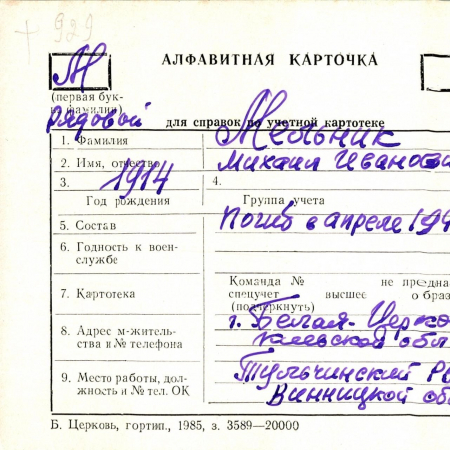 + 929
АЛФАВИТНАЯ КАРТОЧКА
М
(первая бук-
рядовой
для справок по учетной картотеке
1. Фамилия Мельник
2. Имя, отчество Михаил Иванови
3. 1914 4.
Год рождения Группа учета
5. Состав Погиб в апреле 194
6. Годность к воен-
службе
7. Картотека Команда № не предна
спецучет высшее о образ
(подчеркнуть)
8. Адрес м-житель- г. Белая-Церко
ства и № телефона Киевской обл
9. Место работы, дол- Тульчинский Р
жность и № тел. ОК Винницкой об
Б. Церковь, гортип., 1985, з. 3589—20000